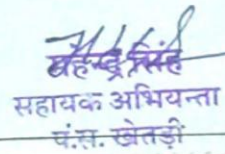 महेन्द्र सिंह
सहायक अभियन्ता
पं.स. खेतड़ी